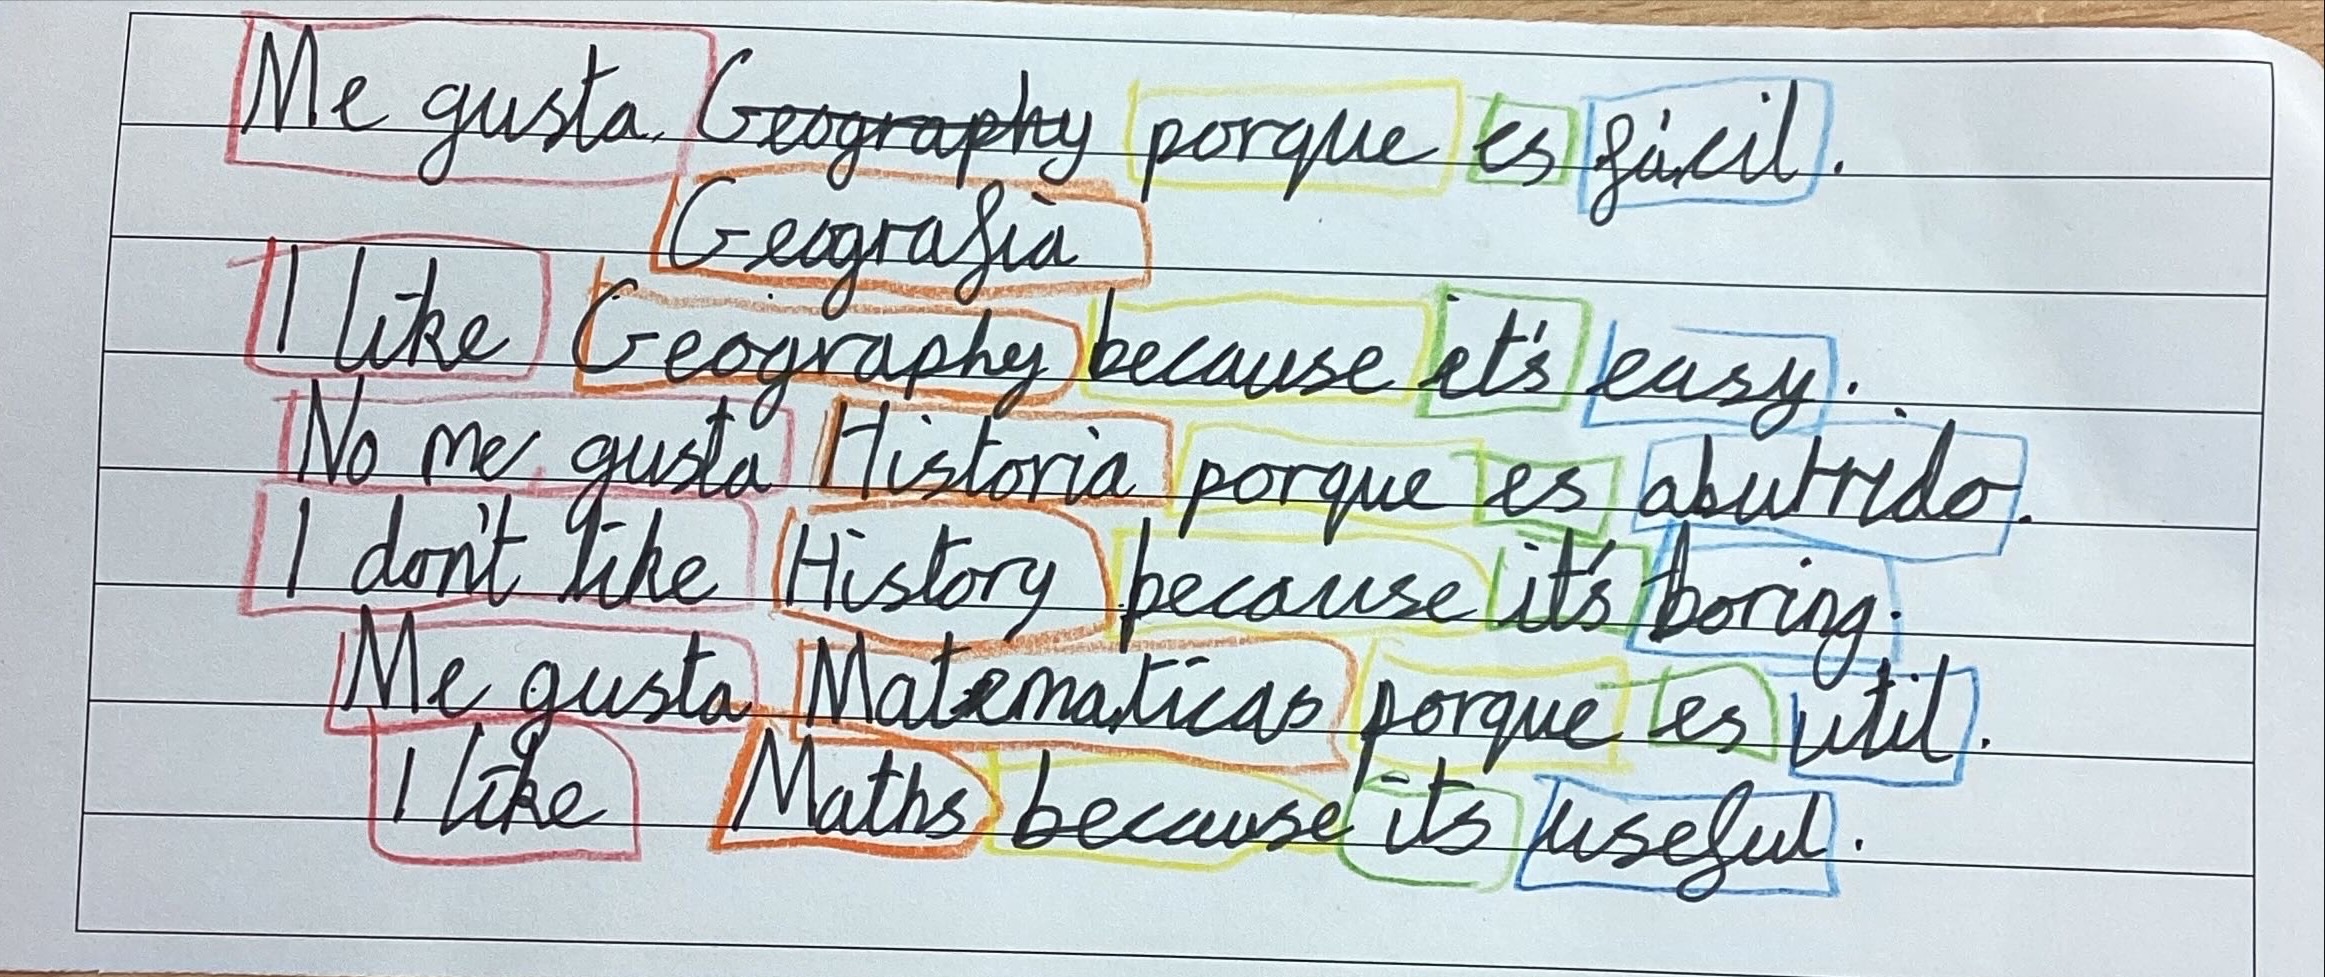 Me gusta Geography porque es fácil.
Geografìa
I like Geography because it's easy.
No me gusta Historia porque es abutrrido.
I don't like History because it's boring.
Me gusta Matematicas porque es util.
I like Maths because its useful.